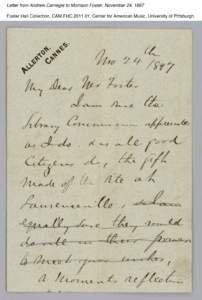 Letter from Andrew Carnegie to Morrison Foster, November 24, 1897
Foster Hall Collection, CAM.FHC.2011.01, Center for American Music, University of Pittsburgh.
ALLERTON,
CANNES.
Nov 24th
/1897
My Dear Mr Foster
I am sure the
Library Commission appreciate
as I do & as all good
Citizens do, the gift
made of the site at
Lawrenceville,
equally sure they would
in their power
to meet your wishes,
a moments reflection